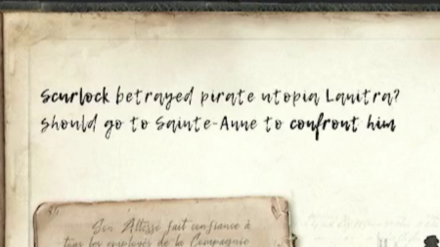 Scurlock betrayed pirate utopia Lanitra?
Should go to Sainte-Anne to confront him
Son Altesse fait confiance à
tous les employés de la Compagnie